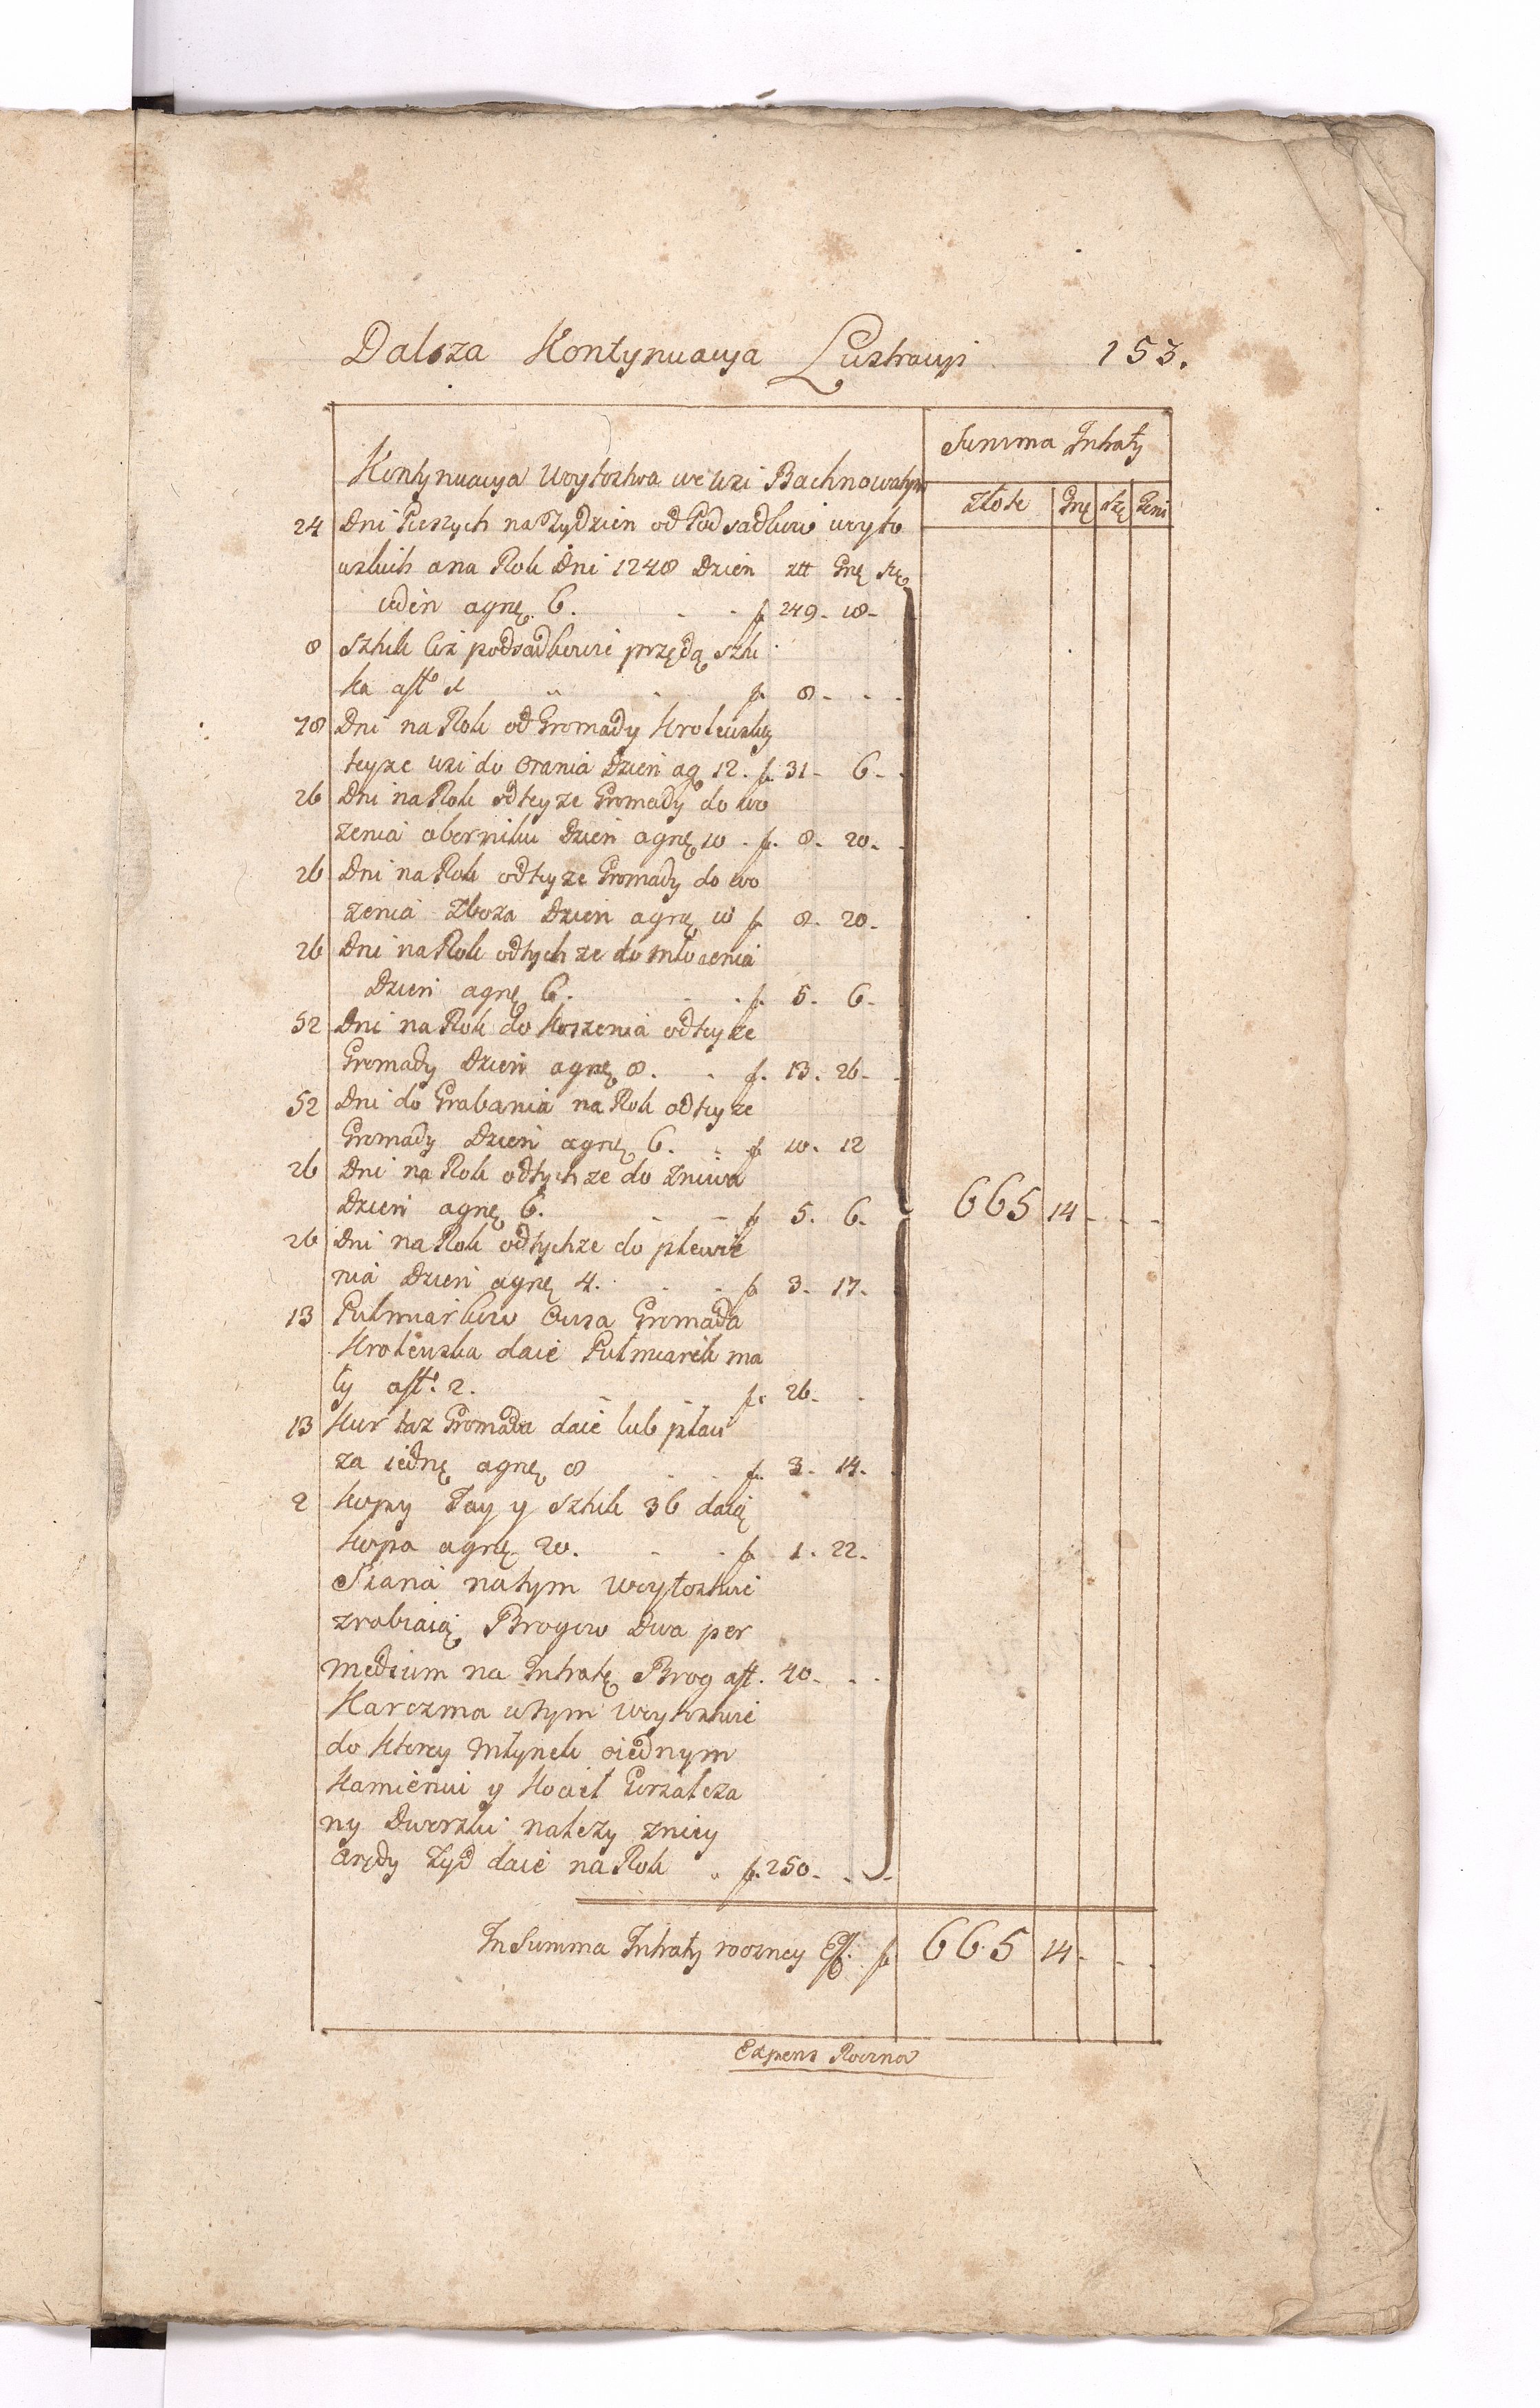 Dalsza Kontynuacya Lustracyi 153.
Summa Intraty
Kontynuacya Woytostwa we wsi Bachnowatym
Złote Grę szę Peni
24 Dni Pieszych na Tydzien od Podsadkow woyto
wskich a na Rok Dni 1248 Dzien złt Grę szę
ieden agrę 6. f 249. 18.
8 Sztuk Ciż podsadkowie przędą sztu
ka aflo 1 f. 8.
78 Dni na Rok od Gromady Krolewsky
teyze wsi do Orania Dzien ag 12. f. 31. 6.
26 Dni na Rok od teyze Gromady do wo
zenia oborniku Dzien agrę 10. f. 8. 20.
26 Dni na Rok od teyze Gromady do wo
zenia Zboza Dzien agrę 10 f. 8. 20.
26 Dni na Rok od tychze do młocenia
Dzien agrę 6. f. 5. 6.
52 Dni na Rok do Koszenia od teyze
Gromady Dzien agrę 8. f. 13. 26.
52 Dni do Grabania na Rok od teyze
Gromady Dzien agrę 6. f 10. 12
26 Dni na Rok od tychze do Zniwa
Dzien agrę 6. f 5. 6. 665 14
26 Dni na Rok od tychze do plewie
nia Dzien agrę 4. f 3. 17.
13 Pułmiarkow Owsa Gromada
Krolewska daie Pułmiarek ma
ły afł. 2. f. 26.
13 Kur taz Gromada daie lub płaci
za iednę agrę 8 f. 3. 14.
2 Kopy Jay y sztuk 36 daią
Kopa agrę 20. f. 1. 22.
Siana na tym woytostwie
zrabiaią Brogow Dwa per
medium na Intratę Brog afł. 40.
Karczma w tym woytostwie
do Ktorey Młynek o iednym
Kamieniu y Kocieł Gorzalcza
ny Dworski nalezy z niey
Arędy Zyd daie na Rok f. 250.
In Summa Intraty roczney f. 665 14
Expens Roczna